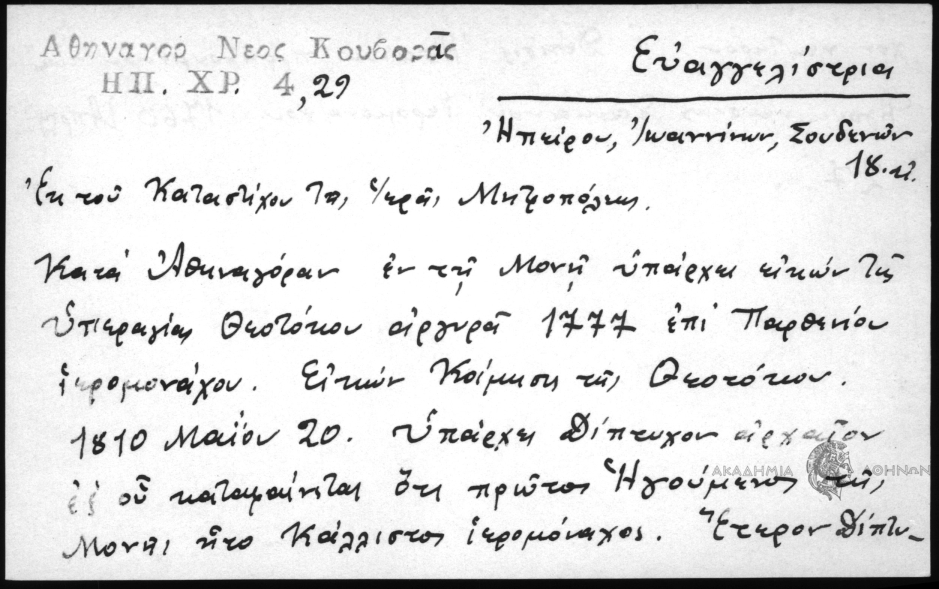 Αθηναγορ Νεος Κουβαρᾶς
ΗΠ. ΧΡ. 4, 29
Εὐαγγελίστρια
Ἠπείρου, Ἰωαννίνων, Σουδενῶν
18. αἰ.
Ἐκ τοῦ Καταστίχου τῆς Ἱερᾶς Μητροπόλεως.
Κατά Ἀθηναγόραν ἐν τῇ Μονῇ ὑπάρχει εἰκών τῆς
Ὑπεραγίας Θεοτόκου ἀργυρᾶ 1777 ἐπί Παρθενίου
ἱερομονάχου. Εἰκών Κοίμησις τῆς Θεοτόκου.
1810 Μαΐου 20. Ὑπάρχει Δίπτυχον ἀρχαῖον
ἐξ οὗ καταφαίνεται ὅτι πρῶτος Ἡγούμενος τῆς
Μονῆς ἦτο Κάλλιστος ἱερομόναχος. Ἕτερον Δίπτυ-
ΑΚΑΔΗΜΙΑ ΑΘΗΝΩΝ